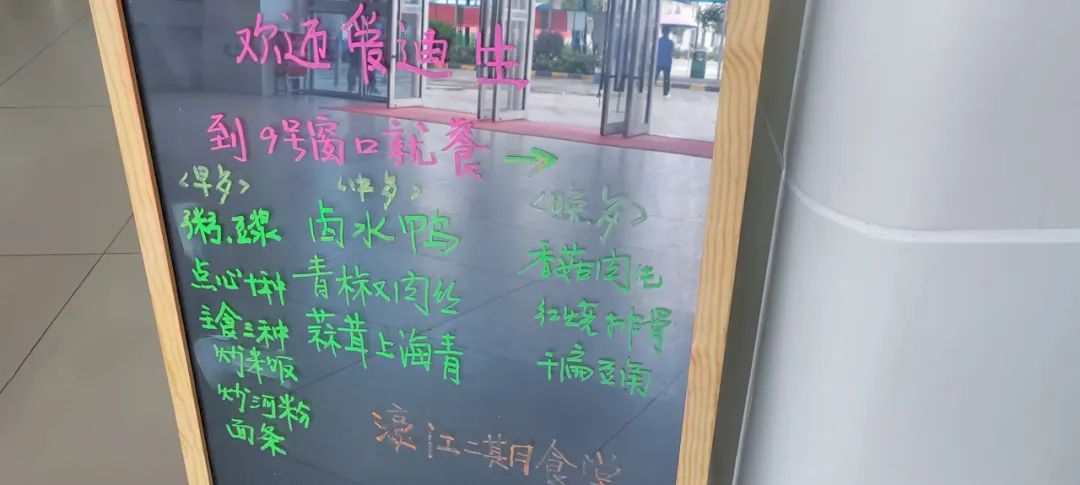 欢迎爱迪生
到9号窗口就餐→
<早歺>
粥.豆浆
点心十种
主食三种
炒米饭
炒河粉
面条
<中歺>
卤水鸭
青椒肉丝
蒜茸上海青
<晚歺>
香菇肉
红烧排骨
干扁豆角
濠江二期食堂